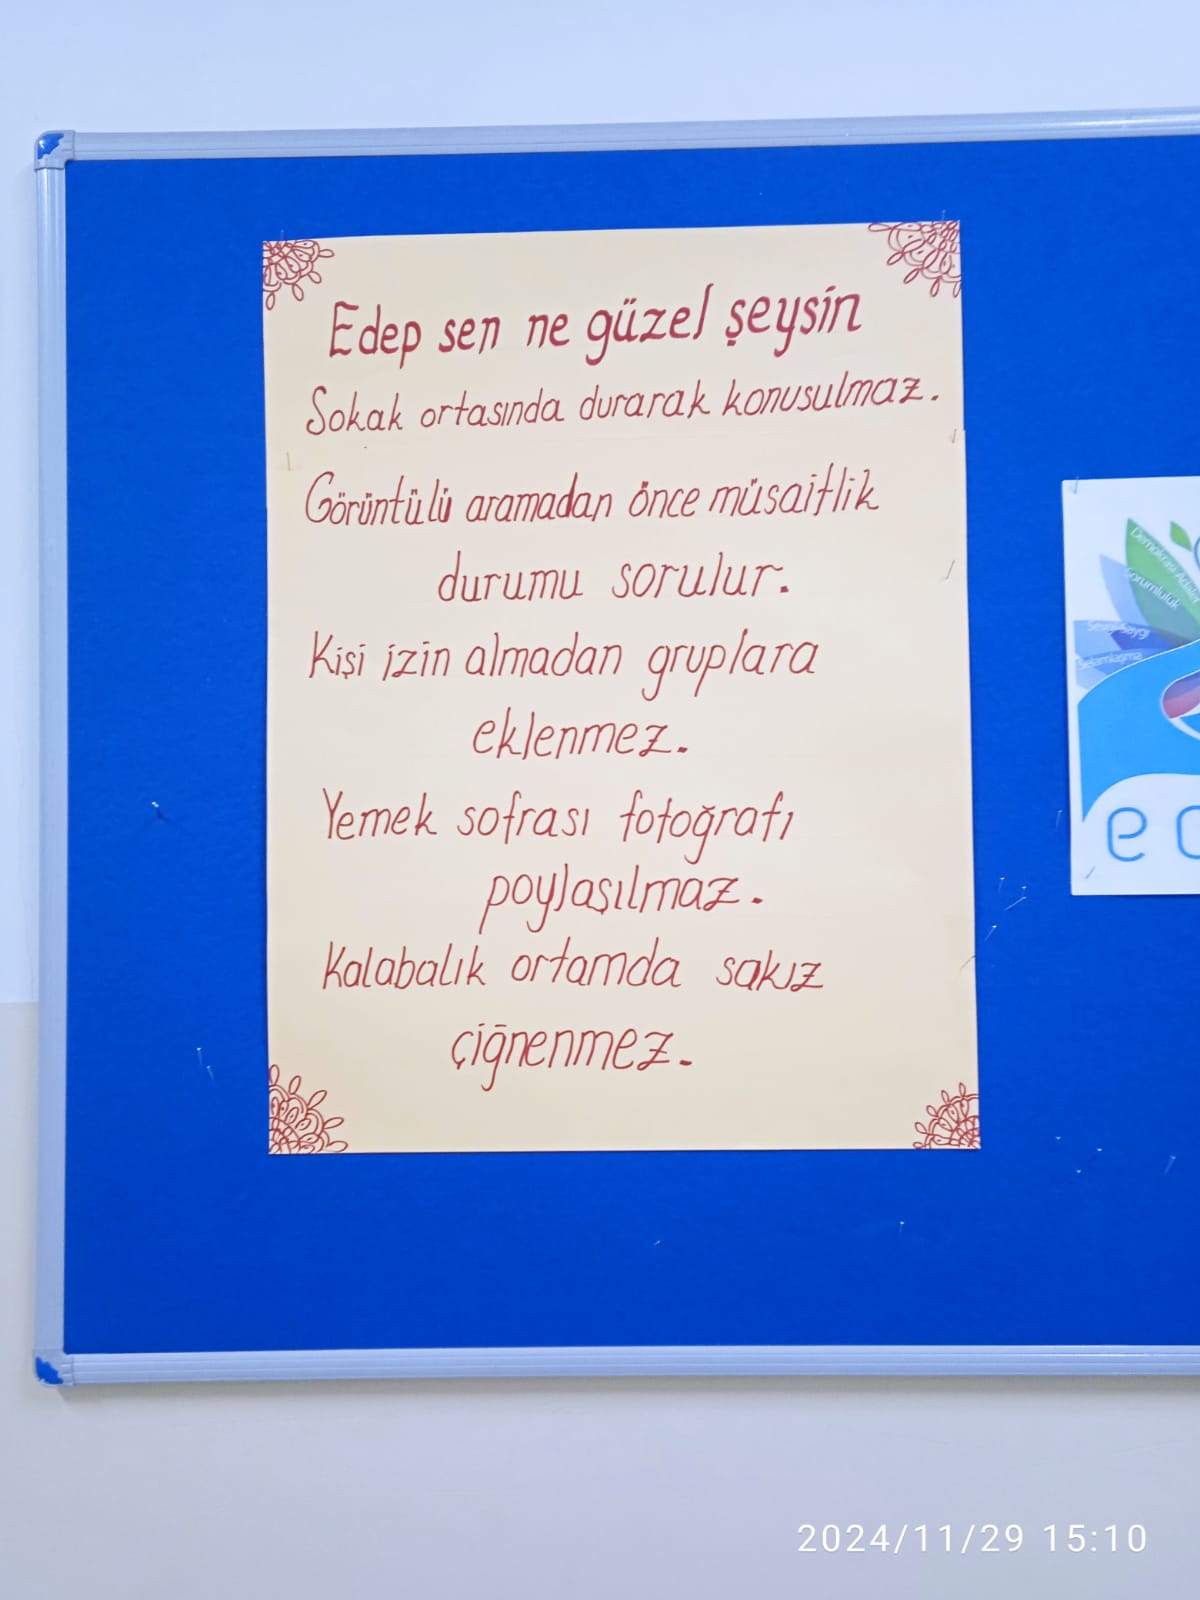 Edep sen ne güzel şeysin
Sokak ortasında durarak konusulmaz.
Görüntülü aramadan önce müsaitlik
durumu sorulur.
Kişi izin almadan gruplara
eklenmez.
Yemek sofrası fotoğrafı
poylaşılmaz.
Kalabalık ortamda sakız
çiğnenmez.
Demokrasi Adalet
Sorumluluk
Sevgi Saygı
Selamlaşma
e
2024/11/29 15:10